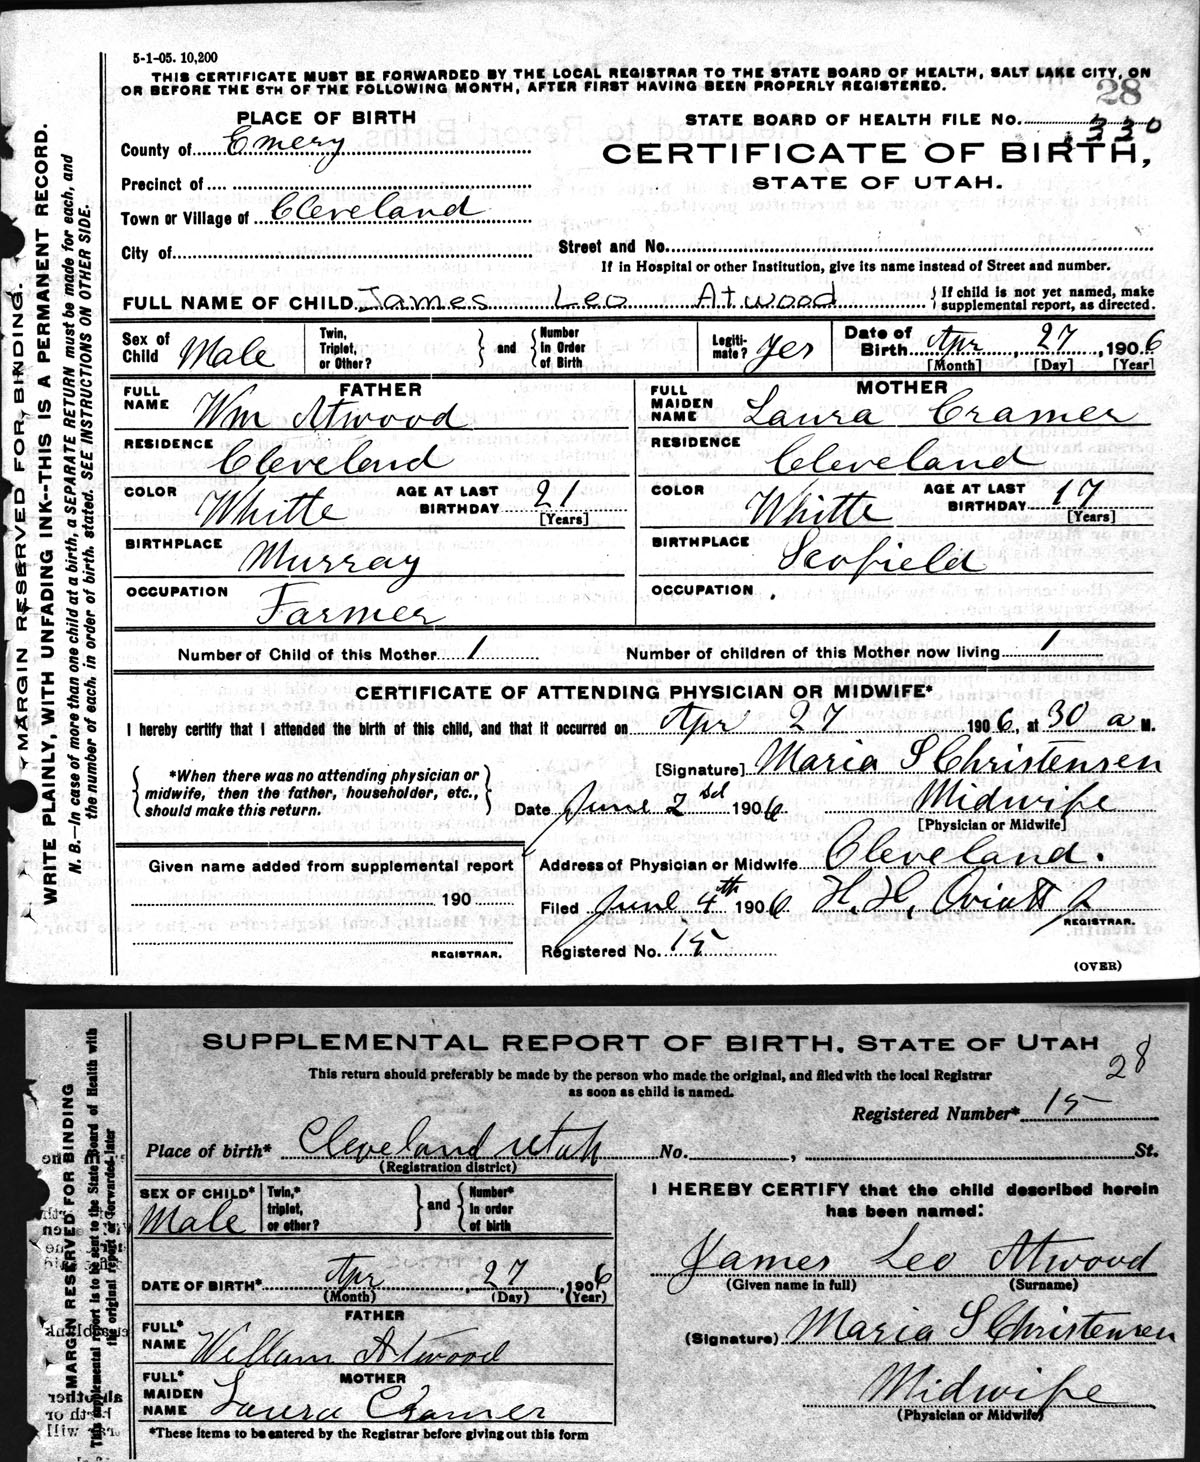 5-1-05. 10,200
THIS CERTIFICATE MUST BE FORWARDED BY THE LOCAL REGISTRAR TO THE STATE BOARD OF HEALTH, SALT LAKE CITY, ON
OR BEFORE THE 5TH OF THE FOLLOWING MONTH, AFTER FIRST HAVING BEEN PROPERLY REGISTERED.
28
PLACE OF BIRTH
STATE BOARD OF HEALTH FILE No. 330
County of Emery
CERTIFICATE OF BIRTH,
Precinct of
STATE OF UTAH.
Town or Village of Cleveland
City of
Street and No.
If in Hospital or other Institution, give its name instead of Street and number.
FULL NAME OF CHILD James Leo Atwood
If child is not yet named, make
supplemental report, as directed.
Sex of Child Male
Twin, Triplet, or Other? and Number In Order of Birth
Legiti- mate? Yes
Date of Birth Apr 27, 1906
[Month] [Day] [Year]
FATHER
FULL NAME Wm Atwood
RESIDENCE Cleveland
COLOR Whitte AGE AT LAST BIRTHDAY 21
[Years]
BIRTHPLACE Murray
OCCUPATION Farmer
MOTHER
FULL MAIDEN NAME Laura Cramer
RESIDENCE Cleveland
COLOR Whitte AGE AT LAST BIRTHDAY 17
[Years]
BIRTHPLACE Scofield
OCCUPATION
Number of Child of this Mother 1 Number of children of this Mother now living 1
CERTIFICATE OF ATTENDING PHYSICIAN OR MIDWIFE*
I hereby certify that I attended the birth of this child, and that it occurred on Apr 27 1906, at 30 a M.
*When there was no attending physician or
midwife, then the father, householder, etc.,
should make this return.
[Signature] Maria S Christensen
Date June 2sd 1906 Midwife
[Physician or Midwife]
Given name added from supplemental report
190
REGISTRAR.
Address of Physician or Midwife Cleveland.
Filed June 4th 1906 H. H. Oviatt Jr
REGISTRAR.
Registered No. 15
(OVER)
MARGIN RESERVED FOR BINDING.
WRITE PLAINLY, WITH UNFADING INK--THIS IS A PERMANENT RECORD.
N. B.—In case of more than one child at a birth, a SEPARATE RETURN must be made for each, and
the number of each, in order of birth, stated. SEE INSTRUCTIONS ON OTHER SIDE.
SUPPLEMENTAL REPORT OF BIRTH. STATE OF UTAH
This return should preferably be made by the person who made the original, and filed with the local Registrar
as soon as child is named.
28
Registered Number* 15
Place of birth* Cleveland Utah No. , St.
(Registration district)
SEX OF CHILD* Male
Twin,* triplet, or other? and Number* In order of birth
DATE OF BIRTH* Apr, 27, 1906
(Month) (Day) (Year)
FATHER
FULL* NAME William Atwood
MOTHER
FULL* MAIDEN NAME Laura Cramer
*These items to be entered by the Registrar before giving out this form
I HEREBY CERTIFY that the child described herein
has been named:
James Leo Atwood
(Given name in full) (Surname)
(Signature) Maria S Christensen
Midwife
(Physician or Midwife)
MARGIN RESERVED FOR BINDING
This supplemental report is to be sent to the State Board of Health with
the original report or forwarded later